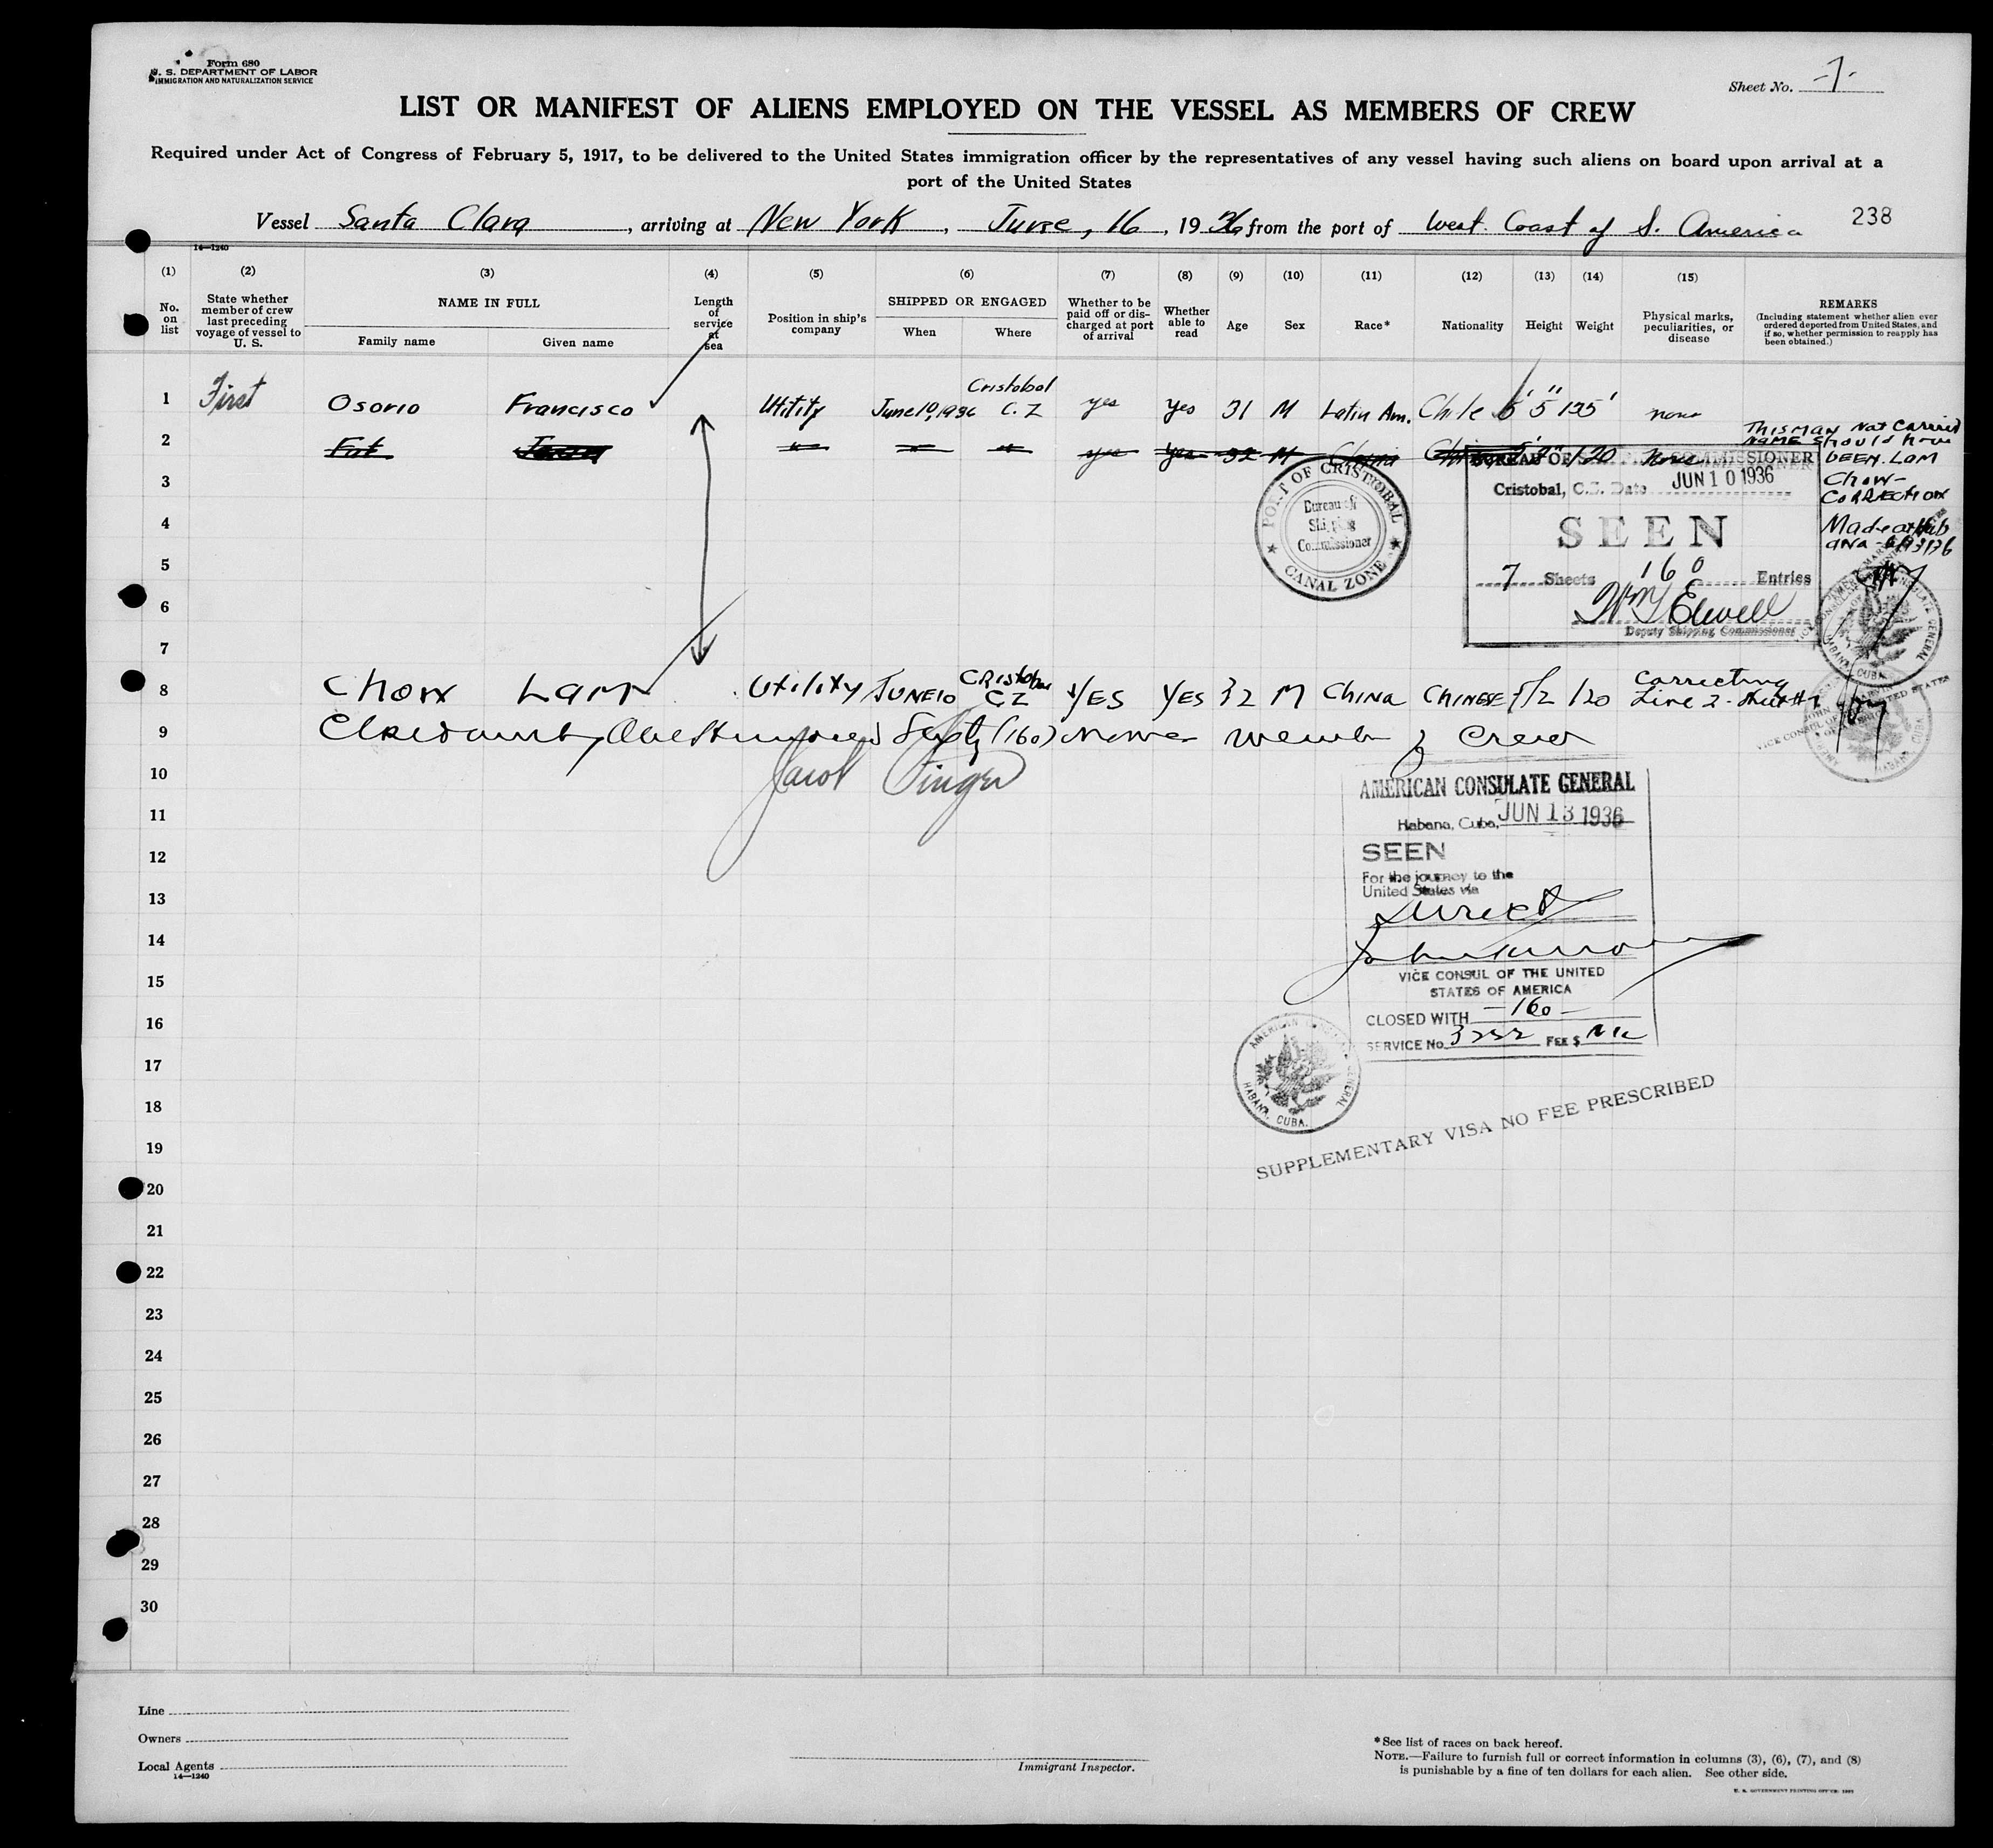 Form 680
U. S. DEPARTMENT OF LABOR
IMMIGRATION AND NATURALIZATION SERVICE
Sheet No. -7-
LIST OR MANIFEST OF ALIENS EMPLOYED ON THE VESSEL AS MEMBERS OF CREW
Required under Act of Congress of February 5, 1917, to be delivered to the United States immigration officer by the representatives of any vessel having such aliens on board upon arrival at a
port of the United States
Vessel Santa Clara, arriving at New York, June, 16, 1936 from the port of West Coast of S. America
238
14—1240
(1) (2) (3) (4) (5) (6) (7) (8) (9) (10) (11) (12) (13) (14) (15)
No. on list
State whether member of crew last preceding voyage of vessel to U. S.
NAME IN FULL
Family name Given name
Length of service at sea
Position in ship's company
SHIPPED OR ENGAGED
When Where
Whether to be paid off or discharged at port of arrival
Whether able to read
Age
Sex
Race*
Nationality
Height
Weight
Physical marks, peculiarities, or disease
REMARKS
(Including statement whether alien ever ordered deported from United States, and if so, whether permission to reapply has been obtained.)
1 First Osorio Francisco Utility June 10, 1936 Cristobal C.Z yes yes 31 M Latin Am. Chile 5' 5" 135 none
2 Fat yes yes 32 M China 120 None
This man not carried
name should have
been. Lam
Chow-
Correction
Made at Hab
ana - 6/13/36
3
4
5
6
7
PORT OF CRISTOBAL
Bureau of
Shipping
Commissioner
CANAL ZONE
BUREAU OF SHIPPING COMMISSIONER
Cristobal, C.Z. Date JUN 10 1936
SEEN
7 Sheets 160 Entries
Wm Elwell
Deputy Shipping Commissioner
AMERICAN CONSULATE GENERAL
HABANA, CUBA.
8 Chow Lam Utility JUNE10 CRistobal CZ YES YES 32 M CHINA CHINESE 5/2 120 Correcting Line 2 - sheet #7
9 (160) Names Crew
10
11
12
13
14
15
16
17
18
19
20
21
22
23
24
25
26
27
28
29
30
AMERICAN CONSULATE GENERAL
Habana, Cuba, JUN 13 1936
SEEN
For the journey to the
United States via
Direct
VICE CONSUL OF THE UNITED
STATES OF AMERICA
CLOSED WITH -160-
SERVICE No. 3252 FEE $
AMERICAN CONSULATE GENERAL
HABANA, CUBA.
SUPPLEMENTARY VISA NO FEE PRESCRIBED
Line
Owners
Local Agents
14—1240
Immigrant Inspector.
*See list of races on back hereof.
NOTE.—Failure to furnish full or correct information in columns (3), (6), (7), and (8)
is punishable by a fine of ten dollars for each alien. See other side.